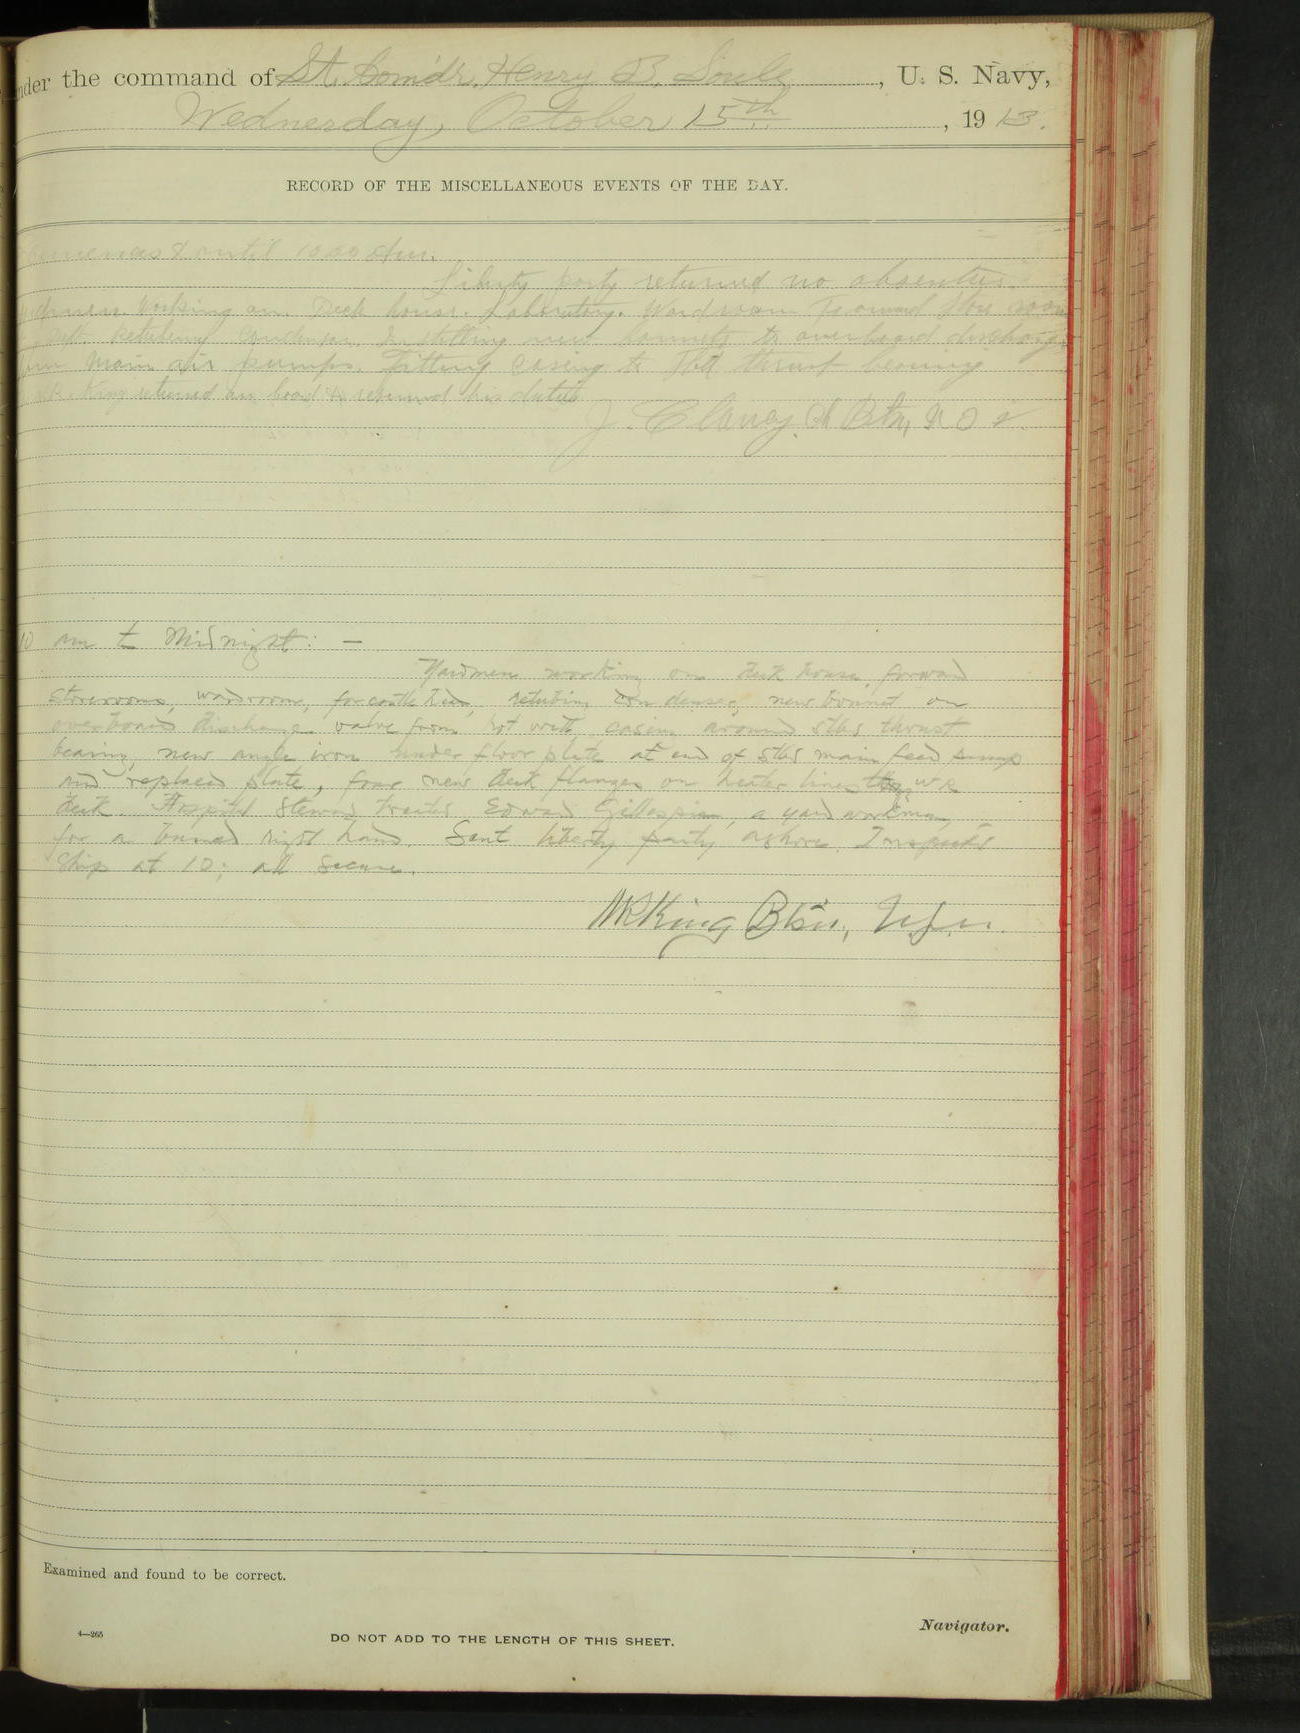 nder the command of Lt. Comdr. Henry B. Soule, U. S. Navy,
Wednesday, October 15th, 1913.
RECORD OF THE MISCELLANEOUS EVENTS OF THE DAY.
& until 10.00 a.m.
Liberty party returned no absentees.
working on Deck house. Laboratory. Wardroom Forward store room
retubing Condenser Installing new bonnets to overboard discharge
Main air pumps. Fitting casing to Stbd thrust bearing
King returned on board & resumed his duties
J. Clancy Ch Btsn, U S N.
10 am to Midnight: —
Yardmen working on deck house, forward
storerooms, wardroom, forecastle head, retubing condenser, new bonnet on
overboard discharge valve from hot well, casing around stbd thrust
bearing, new angle iron under floor plate at end of stbd main feed pump
and replaced plate, four new deck flanges on heater lines
deck. Hospital Steward treated Edward Gillespian, a yard workman,
for a burned right hand. Sent liberty party ashore. Inspected
ship at 10; all secure.
King Btsn, U.S.N.
Examined and found to be correct.
4—265
DO NOT ADD TO THE LENGTH OF THIS SHEET.
Navigator.